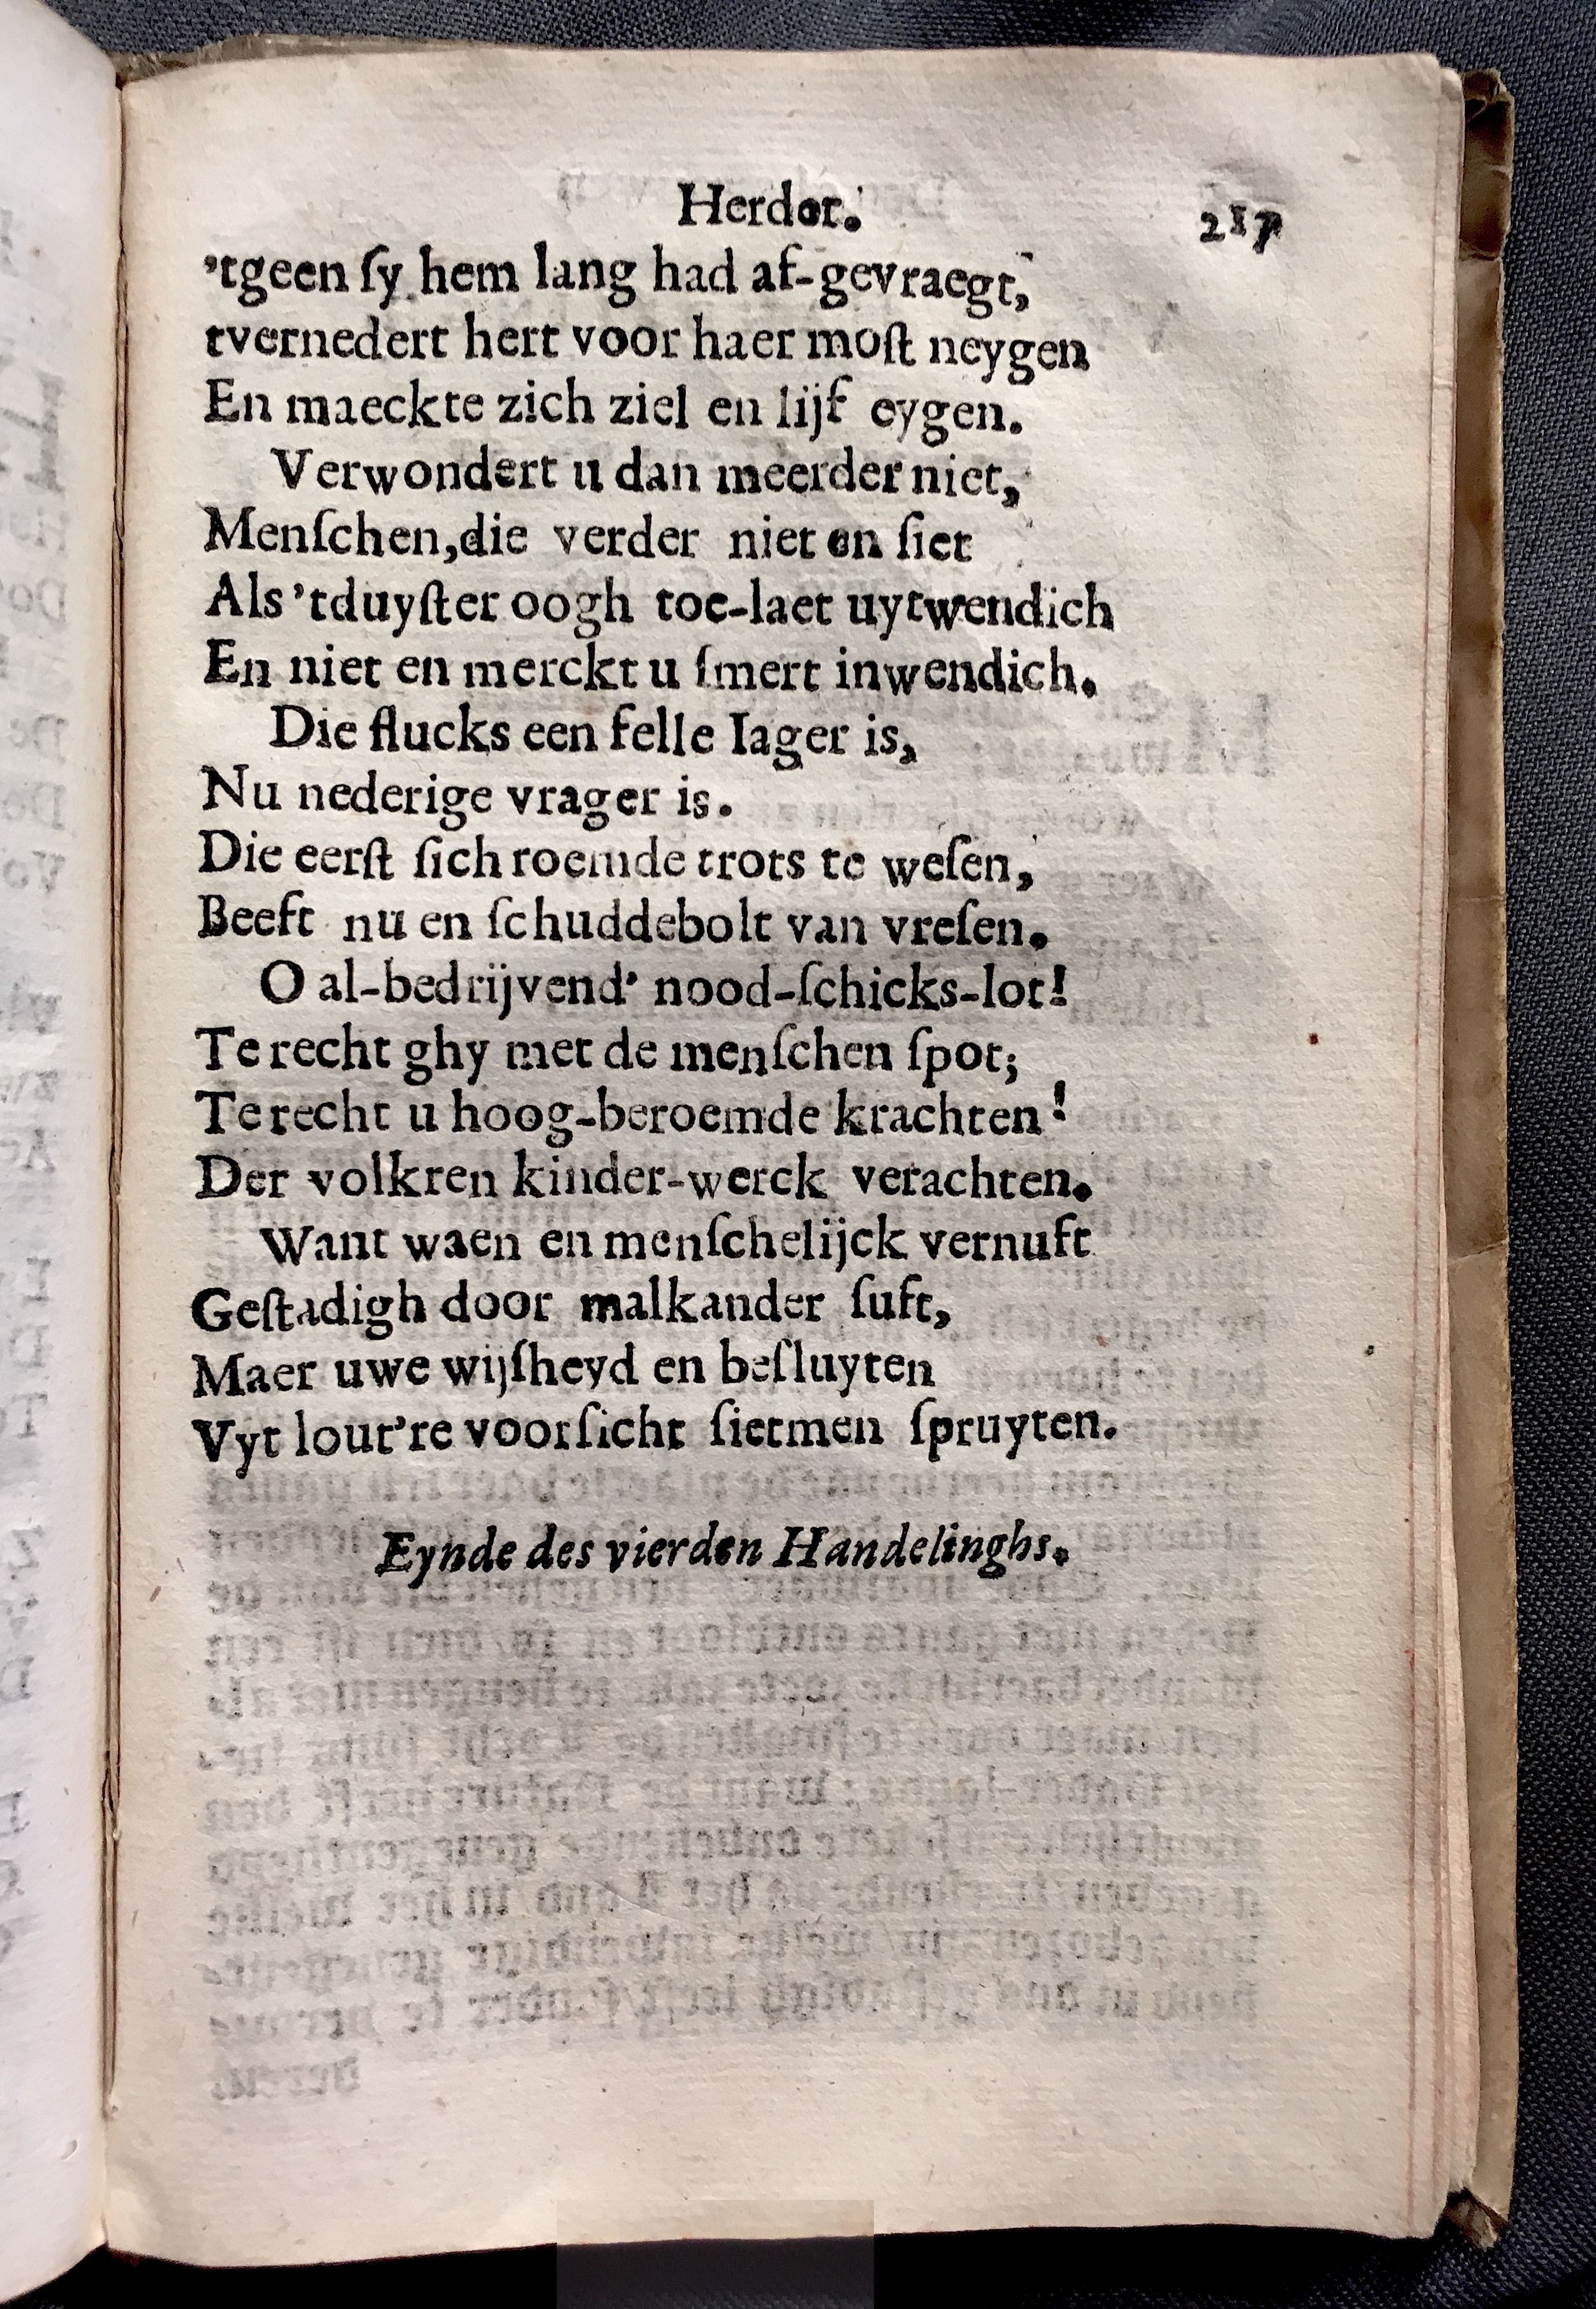 Herder. 217
'tgeen ſy hem lang had af-gevraegt,
tvernedert hert voor haer moſt neygen
En maeckte zich ziel en lijf eygen.
Verwondert u dan meerder niet,
Menſchen, die verder niet en ſiet
Als 'tduyſter oogh toe-laet uytwendich
En niet en merckt u ſmert inwendich.
Die flucks een felle Iager is,
Nu nederige vrager is.
Die eerſt ſich roemde trots te weſen,
Beeft nu en ſchuddebolt van vreſen.
O al-bedrijvend' nood-ſchicks-lot!
Te recht ghy met de menſchen ſpot;
Te recht u hoog-beroemde krachten!
Der volkren kinder-werck verachten.
Want waen en menſchelijck vernuft
Geſtadigh door malkander ſuft,
Maer uwe wijſheyd en beſluyten
Vyt lout're voorſicht ſietmen ſpruyten.
Eynde des vierden Handelinghs.